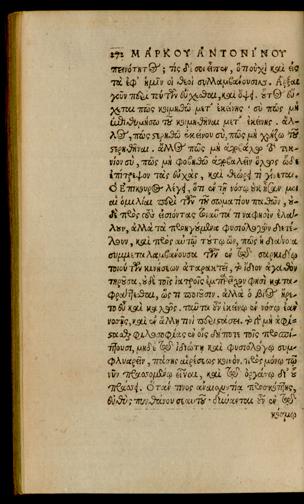 272 ΜΑΡΚΟΥ ΑΝΤΟΝΙΝΟΥ
πεινότητος; τίς δέ σοι εἶπεν, ὅτι οὐχὶ καὶ εἰς
τὰ ἐφ' ἡμῖν οἱ θεοὶ συλλαμβάνουσιν. Ἄρξαι
γοῦν περὶ τούτων εὔχεσθαι, καὶ ὄψει. οὗτος εὔ-
χεται πῶς κοιμηθῶ μετ' ἐκείνης· σὺ πῶς μὴ
ἐπιθυμήσω τοῦ κοιμηθῆναι μετ' ἐκείνης. ἄλ-
λος, πῶς στερηθῶ ἐκείνου· σὺ, πῶς μὴ χρῄζω τοῦ
στερηθῆναι. ἄλλος πῶς μὴ ἀποβάλω τὸ τεκ-
νίον· σὺ, πῶς μὴ φοβηθῶ ἀποβαλεῖν. ὅλως ὧδε
ἐπίτρεψον τὰς εὐχὰς, καὶ θεώρει τί γίνεται.
Ὁ Ἐπίκουρος λέγει, ὅτι ἐν τῇ νόσῳ οὐκ ἦσάν μοι
αἱ ὁμιλίαι περὶ τῶν τοῦ σωματίου παθῶν, οὐ-
δὲ πρὸς τοὺς εἰσιόντας τοιαῦτά τινα φησὶν ἐλά-
λουν, ἀλλὰ τὰ προηγούμενα φυσιολογῶν διετέ-
λουν, καὶ πρὸς αὐτῷ τούτῳ ὢν, πῶς ἡ διάνοια
συμμεταλαμβάνουσα τῶν ἐν τῷ σαρκιδίῳ
τοιούτων κινήσεων ἀταρακτεῖ, τὸ ἴδιον ἀγαθὸν
τηροῦσα, οὐδὲ τοῖς ἰατροῖς ἐμπαρεῖχον φησὶ κατα-
φρυάττεσθαι, ὥς τι ποιοῦσιν. ἀλλὰ ὁ βίος ἤγε-
το εὖ καὶ καλῶς. ταὐτὰ οὖν ἐκείνῳ ἐν νόσῳ ἐὰν
νοσῇς, καὶ ἐν ἄλλῃ τινὶ περιστάσει. τὸ γὰρ μὴ ἀφί-
στασθαι φιλοσοφίας ἐν οἷς δήποτε τοῖς προσπί-
πτουσι, μηδὲ τῷ ἰδιώτῃ καὶ φυσιολόγῳ συμ-
φλυαρεῖν, πάσης αἱρέσεως κοινόν. πρὸς μόνῳ τῷ
νῦν πρασσομένῳ εἶναι, καὶ τῷ ὀργάνῳ δι' οὗ
πράσσει. Ὅταν τινὸς ἀναισχυντίᾳ προσκόπτῃς,
εὐθὺς πυνθάνου σεαυτοῦ· δύνανται οὖν ἐν τῷ
κόσμῳ